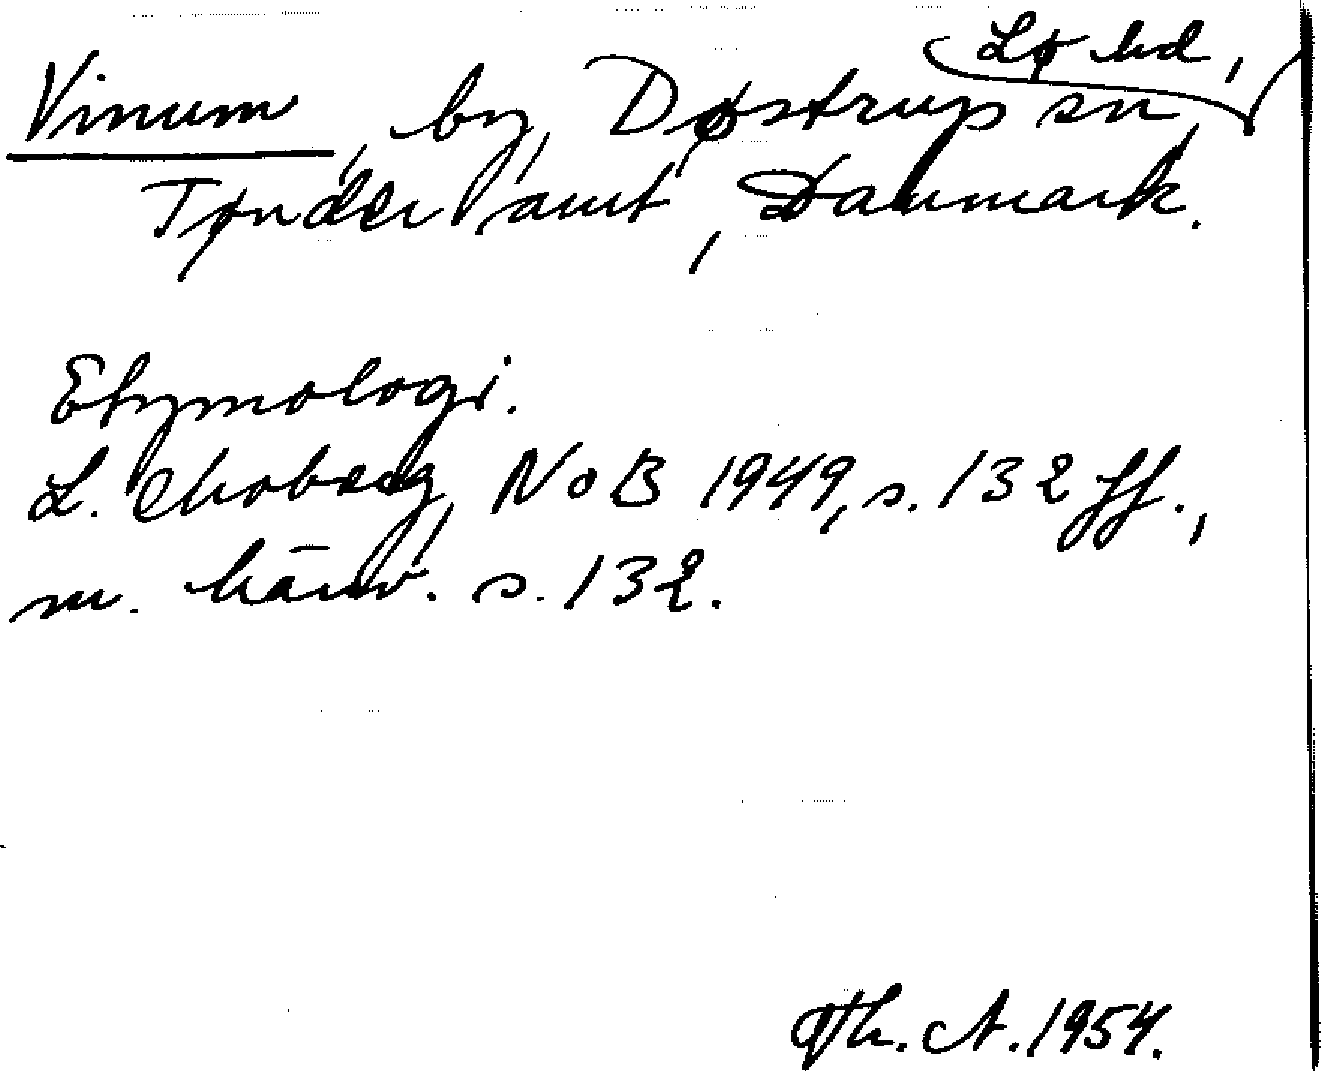 Vinum, by, Døstrup sn, Lø hd,
Tønder amt, Danmark.
Etymologi.
L. Moberg, NoB 1949, s. 132 ff.,
m. hänv. s. 132.
Th. A. 1954.